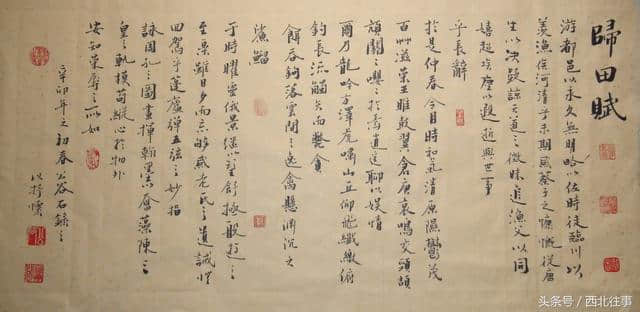 歸田賦
游都邑以永久無明略以佐時徒臨川以
羨漁俟河清乎未期感蔡子之慷慨從唐
生以決疑諒天道之微昧追漁父以同
嬉超埃塵以遐逝與世事
乎長辭
於是仲春令月時和氣清原隰鬱茂
百艸滋榮王雎鼓翼倉庚哀鳴交頸頡
頏關々嚶々於焉逍遙聊以娛情
爾乃龍吟方澤虎嘯山丘仰飛纖繳俯
釣長流觸矢而斃貪
餌吞鉤落雲間之逸禽懸淵沉之
鯊鰡
于時曜靈俄景係以望舒極般遊之
至樂雖日夕而忘劬感老氏之遺誡將
回駕乎蓬廬彈五弦之妙指
詠周孔之圖書揮翰墨以奮藻陳三
皇之軌模苟縱心於物外
安知榮辱之所如
辛卯年之初春公谷石錄之
以抒懷
头条号 / 西北往事